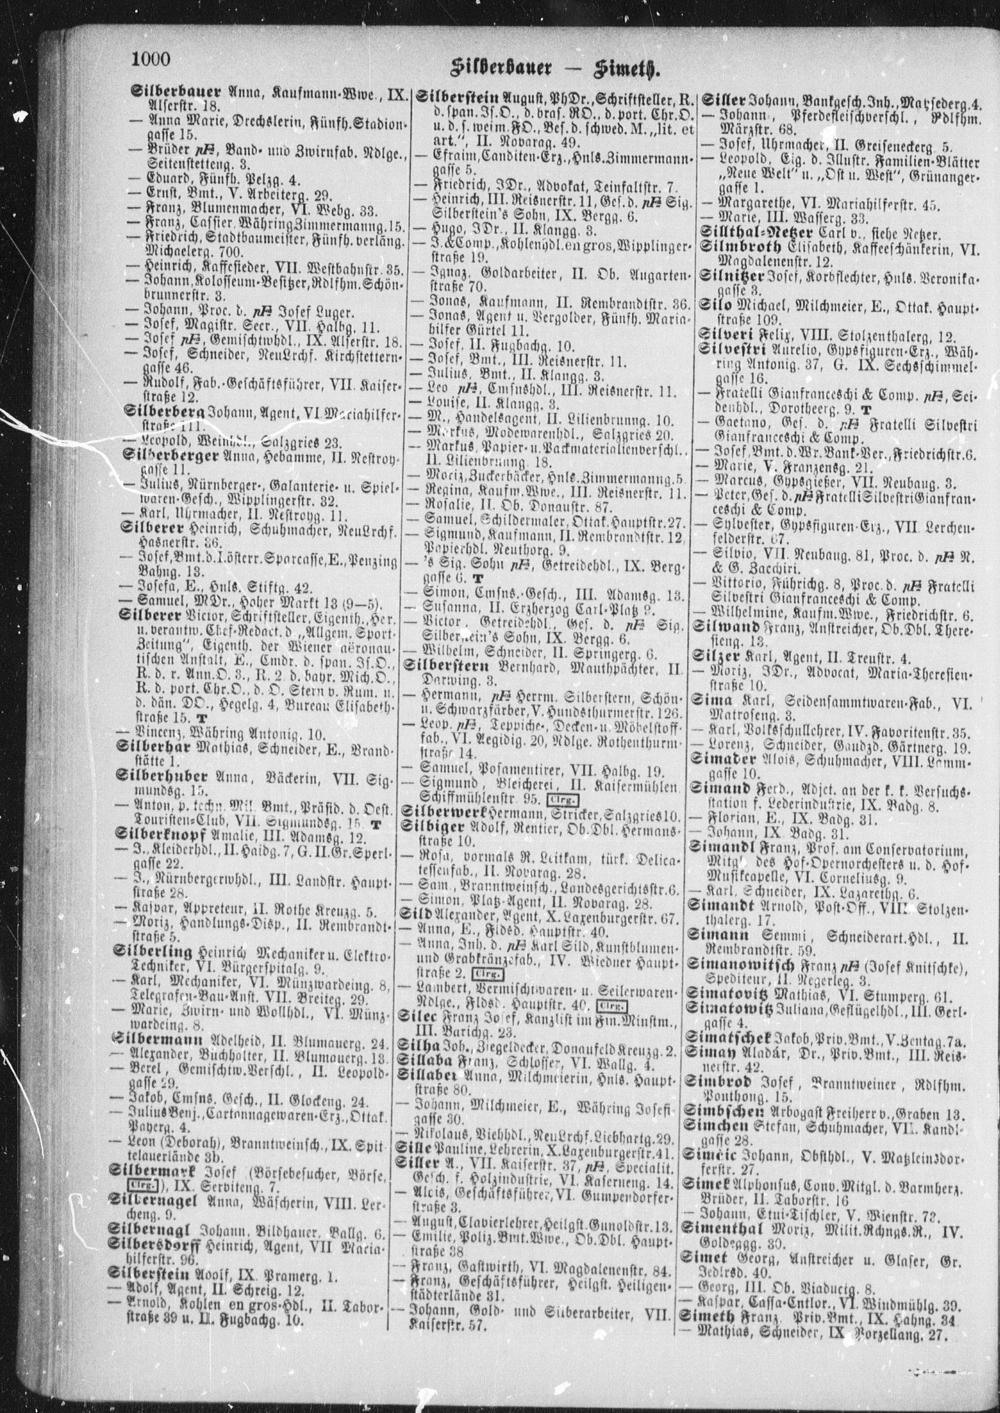 1000
Silberbauer — Simeth.
Silberbauer Anna, Kaufmann-Wwe., IX.
Alserstr. 18.
— Anna Marie, Drechslerin, Fünfh. Stadion-
gasse 15.
— Brüder, Band- und Zwirnfab. Ndlge.,
Seitenstetteng. 3.
— Eduard, Fünfh. Pelzg. 4.
— Ernst, Bmt., V. Arbeiterg. 29.
— Franz, Blumenmacher, VI. Webg. 33.
— Franz, Cassier, Währing Zimmermanng. 15.
— Friedrich, Stadtbaumeister, Fünfh. verläng.
Michaelerg. 700.
— Heinrich, Kaffesieder, VII. Westbahnstr. 35.
— Johann, Kolosseum-Besitzer, Rdlfhm. Schön-
brunnerstr. 3.
— Johann, Proc. d. Josef Luger.
— Josef, Magistr. Secr., VII. Halbg. 11.
— Josef, Gemischtwhdl., IX. Alserstr. 18.
— Josef, Schneider, NeuLrchf. Kirchstettern-
gasse 46.
— Rudolf, Fab.-Geschäftsführer, VII. Kaiser-
straße 12.
Silberberg Johann, Agent, VI Mariahilfer-
straße 111.
— Leopold, Weinhdl., Salzgries 23.
Silberberger Anna, Hebamme, II. Nestroy-
gasse 11.
— Julius, Nürnberger-, Galanterie- u. Spiel-
waren-Gesch., Wipplingerstr. 32.
— Karl, Uhrmacher, II. Nestroyg. 11.
Silberer Heinrich, Schuhmacher, NeuLrchf.
Hasnerstr. 36.
— Josef, Bmt. d. I. österr. Sparcasse, E., Penzing
Bahng. 13.
— Josefa, E., Hnls. Stiftg. 42.
— Samuel, MDr., Hoher Markt 13 (9—5).
Silberer Victor, Schriftsteller, Eigenth., Her.
u. verantw. Chef-Redact. d „Allgem. Sport-
Zeitung“, Eigenth. der Wiener aëronau-
tischen Anstalt, E., Cmdr. d. span. Is. O.,
R. d. r. Ann. O. 3., R. 2 d. bayr. Mich. O.,
R. d. port. Chr. O., d. O. Stern v. Rum. u.
d. dän. DO., Hegelg. 4, Bureau Elisabeth-
straße 15. T
— Vincenz, Währing Antonig. 10.
Silberhar Mathias, Schneider, E., Brand-
stätte 1.
Silberhuber Anna, Bäckerin, VII. Sig-
mundsg. 15.
— Anton, p. techn. Mil. Bmt., Präsid. d. Oest.
Touristen-Club, VII. Sigmundsg. 15 T
Silberknopf Amalie, III. Adamsg. 12.
— J., Kleiderhdl., II. Haidg. 7, G. II. Gr. Sperl-
gasse 22.
— J., Nürnbergerwhdl., III. Landstr. Haupt-
straße 28.
— Kaspar, Appreteur, II. Rothe Kreuzg. 5.
— Moriz, Handlungs-Disp., II. Rembrandt-
straße 5.
Silberling Heinrich Mechaniker u. Elektro-
Techniker, VI. Bürgerspitalg. 9.
— Karl, Mechaniker, VI. Münzwardeing. 8,
Telegrafen-Bau-Anst. VII. Breiteg. 29.
— Marie, Zwirn- und Wollhdl., VI. Münz-
wardeing. 8.
Silbermann Adelheid, II. Blumauerg. 24.
— Alexander, Buchhalter, II. Blumauerg. 13.
— Berel, Gemischtw. Verschl., II. Leopold-
gasse 29.
— Jakob, Cmsns. Gesch., II. Glockeng. 24.
— Julius Benj., Cartonnagewaren-Erz., Ottak.
Payerg. 4.
— Leon (Deborah), Branntweinsch., IX. Spit-
telauerlände 3b.
Silbermark Josef (Börsebesucher, Börse,
Clrg.), IX. Serviteng. 7.
Silbernagel Anna, Wäscherin, VIII. Ler-
cheng. 9.
Silbernagl Johann, Bildhauer, Ballg. 6.
Silbersdorff Heinrich, Agent, VII Maria-
hilferstr. 96.
Silberstein Adolf, IX. Pramerg. 1.
— Adolf, Agent, II. Schreig. 12.
— Arnold, Kohlen en gros-Hdl., II. Tabor-
straße 39 u. II. Fugbachg. 10.
Silberstein August, PhDr., Schriftsteller, R.
d. span. Is. O., d. bras. RO., d. port. Chr. O.
u. d. s. weim. FO., Bes. d. schwed. M. „lit. et
art.“, II. Novarag. 49.
— Efraim, Canditen-Erz., Hnls. Zimmermann-
gasse 5.
— Friedrich, JDr., Advokat, Teinfaltstr. 7.
— Heinrich, III. Reisnerstr. 11, Ges. d. Sig.
Silberstein's Sohn, IX. Bergg. 6.
— Hugo, JDr., II. Klangg. 3.
— J. & Comp., Kohlenhdl. en gros, Wipplinger-
straße 19.
— Ignaz, Goldarbeiter, II. Ob. Augarten-
straße 70.
— Jonas, Kaufmann, II. Rembrandtstr. 36.
— Jonas, Agent u. Vergolder, Fünfh. Maria-
hilfer Gürtel 11.
— Josef, II. Fugbachg. 10.
— Josef, Bmt., III. Reisnerstr. 11.
— Julius, Bmt., II. Klangg. 3.
— Leo, Cmsnshdl., III. Reisnerstr. 11.
— Louise, II. Klangg. 3.
— M., Handelsagent, II. Lilienbrunng. 10.
— Markus, Modewarenhdl., Salzgries 20.
— Markus, Papier- u. Packmaterialienverschl.,
II. Lilienbrunng. 18.
— Moriz, Zuckerbäcker, Hnls. Zimmermanng. 5.
— Regina, Kaufm. Wwe., III. Reisnerstr. 11.
— Rosalie, II. Ob. Donaustr. 87.
— Samuel, Schildermaler, Ottak. Hauptstr. 27.
— Sigmund, Kaufmann, II. Rembrandtstr. 12,
Papierhdl. Neuthorg. 9.
— 's Sig. Sohn, Getreidehdl., IX. Berg-
gasse 6. T
— Simon, Cmsns.-Gesch., III. Adamsg. 13.
— Susanna, II. Erzherzog Carl-Platz 2.
— Victor, Getreidehdl., Ges. d. Sig.
Silberstein's Sohn, IX. Bergg. 6.
— Wilhelm, Schneider, II. Springerg. 6.
Silberstern Bernhard, Mauthpächter, II.
Darwing. 3.
— Hermann, Herrm. Silberstern, Schön-
u. Schwarzfärber, V. Hundsthurmerstr. 126.
— Leop., Teppiche-, Decken- u. Möbelstoff-
fab., VI. Aegidig. 20, Ndlge. Rothenthurm-
straße 14.
— Samuel, Posamentirer, VII. Halbg. 19.
— Sigmund, Bleicherei, II. Kaisermühlen
Schiffmühlenstr. 95. Clrg.
Silberwerk Hermann, Stricker, Salzgries 10.
Silbiger Adolf, Rentier, Ob. Dbl. Hermann-
straße 10.
— Rosa, vormals R. Leitkam, türk. Delica-
tessenfab., II. Novarag. 28.
— Sam., Branntweinsch., Landesgerichtsstr. 6.
— Simon, Platz-Agent, II. Novarag. 28.
Sild Alexander, Agent, X. Laxenburgerstr. 67.
— Anna, E., Fldsd. Hauptstr. 40.
— Anna, Inh. d. Karl Sild, Kunstblumen-
und Grabkränzefab., IV. Wiedner Haupt-
straße 2. Clrg.
— Lambert, Vermischtwaren- u. Seilerwaren-
Ndlge., Fldsd. Hauptstr. 40. Clrg.
Silec Franz Josef, Kanzlist im Fin. Minstm.,
III. Barichg. 23.
Silha Joh., Ziegeldecker, Donaufeld Kreuzg. 2.
Sillaba Franz, Schlosser, VI. Wallg. 4.
Sillaber Anna, Milchmeierin, Hnls. Haupt-
straße 80.
— Johann, Milchmeier, E., Währing Josefi-
gasse 30.
— Nikolaus, Viehhdl., NeuLrchf. Liebhartg. 29.
Sille Pauline, Lehrerin, X. Laxenburgerstr. 41.
Siller A., VII. Kaiserstr. 37, Specialit.
Gesch. f. Holzindustrie, VI. Kaserneng. 14.
— Alois, Geschäftsführer, VI. Gumpendorfer-
straße 3.
— August, Clavierlehrer, Heilgst. Gunoldstr. 13.
— Emilie, Poliz. Bmt. Wwe., Ob. Dbl. Haupt-
straße 38
— Franz, Gastwirth, VI. Magdalenenstr. 84.
— Franz, Geschäftsführer, Heilgst. Heiligen-
städterlände 31.
— Johann, Gold- und Silberarbeiter, VII.
Kaiserstr. 57.
Siller Johann, Bankgesch. Inh., Mayserderg. 4.
— Johann, Pferdefleischverschl., Rdlfhm.
Märzstr. 68.
— Josef, Uhrmacher, II. Greiseneckerg. 5.
— Leopold, Eig. d. Illustr. Familien-Blätter
„Neue Welt“ u. „Ost u. West“, Grünanger-
gasse 1.
— Margarethe, VI. Mariahilferstr. 45.
— Marie, III. Wasserg. 33.
Sillthal-Netzer Carl v., siehe Netzer.
Silmbroth Elisabeth, Kaffeeschänkerin, VI.
Magdalenenstr. 12.
Silnitzer Josef, Korbflechter, Hnls. Veronika-
gasse 3.
Silo Michael, Milchmeier, E., Ottak. Haupt-
straße 109.
Silveri Felix, VIII. Stolzenthalerg. 12.
Silvestri Aurelio, Gypsfiguren-Erz., Wäh-
ring Antonig. 37, G. IX. Sechsschimmel-
gasse 16.
— Fratelli Gianfranceschi & Comp., Sei-
denhdl., Dorotheerg. 9. T
— Gaetano, Ges. d. Fratelli Silvestri
Gianfranceschi & Comp.
— Josef, Bmt. d. Wr. Bank-Ver., Friedrichstr. 6.
— Marie, V. Franzensg. 21.
— Marcus, Gypsgießer, VII. Neubaug. 3.
— Peter, Ges. d. Fratelli Silvestri Gianfran-
ceschi & Comp.
— Sylvester, Gypsfiguren-Erz., VII. Lerchen-
felderstr. 67.
— Silvio, VII. Neubaug. 81, Proc. d. N.
& G. Zacchiri.
— Vittorio, Führichg. 8, Proc. d. Fratelli
Silvestri Gianfranceschi & Comp.
— Wilhelmine, Kaufm. Wwe., Friedrichstr. 6.
Silwand Franz, Anstreicher, Ob. Dbl. There-
sieng. 13.
Silzer Karl, Agent, II. Treustr. 4.
— Moriz, JDr., Advocat, Maria-Theresien-
straße 10.
Sima Karl, Seidensammtwaren-Fab., VI.
Matroseng. 3.
— Karl, Volksschullehrer, IV. Favoritenstr. 35.
— Lorenz, Schneider, Gaudzd. Gärtnerg. 19.
Simader Alois, Schuhmacher, VIII. Lamm-
gasse 10.
Simand Ferd., Adjct. an der k. k. Versuchs-
station f. Lederindustrie, IX. Badg. 8.
— Florian, E., IX. Badg. 31.
— Johann, IX. Badg. 31.
Simandl Franz, Prof. am Conservatorium,
Mitg' des Hof-Opernorchesters u. d. Hof-
Musikcapelle, VI. Corneliusg. 9.
— Karl, Schneider, IX. Lazarethg. 6.
Simandt Arnold, Post-Off., VIII Stolzen-
thalerg. 17.
Simann Semmi, Schneiderart. Hdl., II.
Rembrandtstr. 59.
Simanowitsch Franz (Josef Knitschke),
Spediteur, II. Negerleg. 3.
Simatovitz Mathias, VI. Stumperg. 61.
Simatowitz Juliana, Geflügelhdl., III. Gerl-
gasse 4.
Simatschek Jakob, Priv. Bmt., V. Zentag. 7a.
Simay Aladár, Dr., Priv. Bmt., III. Reis-
nerstr. 42.
Simbrod Josef, Branntweiner, Rdlfhm.
Ponthong. 15.
Simbschen Arbogast Freiherr v., Graben 13.
Simchen Stefan, Schuhmacher, VII. Kandl-
gasse 28.
Simčic Johann, Obsthdl., V. Matzleinsdor-
ferstr. 27.
Simek Alphonsus, Conv. Mitgl. d. Barmherz.
Brüder, II. Taborstr. 16
— Johann, Etui-Tischler, V. Wienstr. 73.
Simenthal Moriz, Milit. Rchngs. R., IV.
Goldeggg. 30.
Simet Georg, Anstreicher u. Glaser, Gr.
Jedlrsd. 40.
— Georg, III. Ob. Viaductg. 8.
— Kaspar, Cassa-Cntlor., VI. Windmühlg. 39.
Simeth Franz, Priv. Bmt., IX. Hahng. 34
— Mathias, Schneider, IX Porzellang. 27.